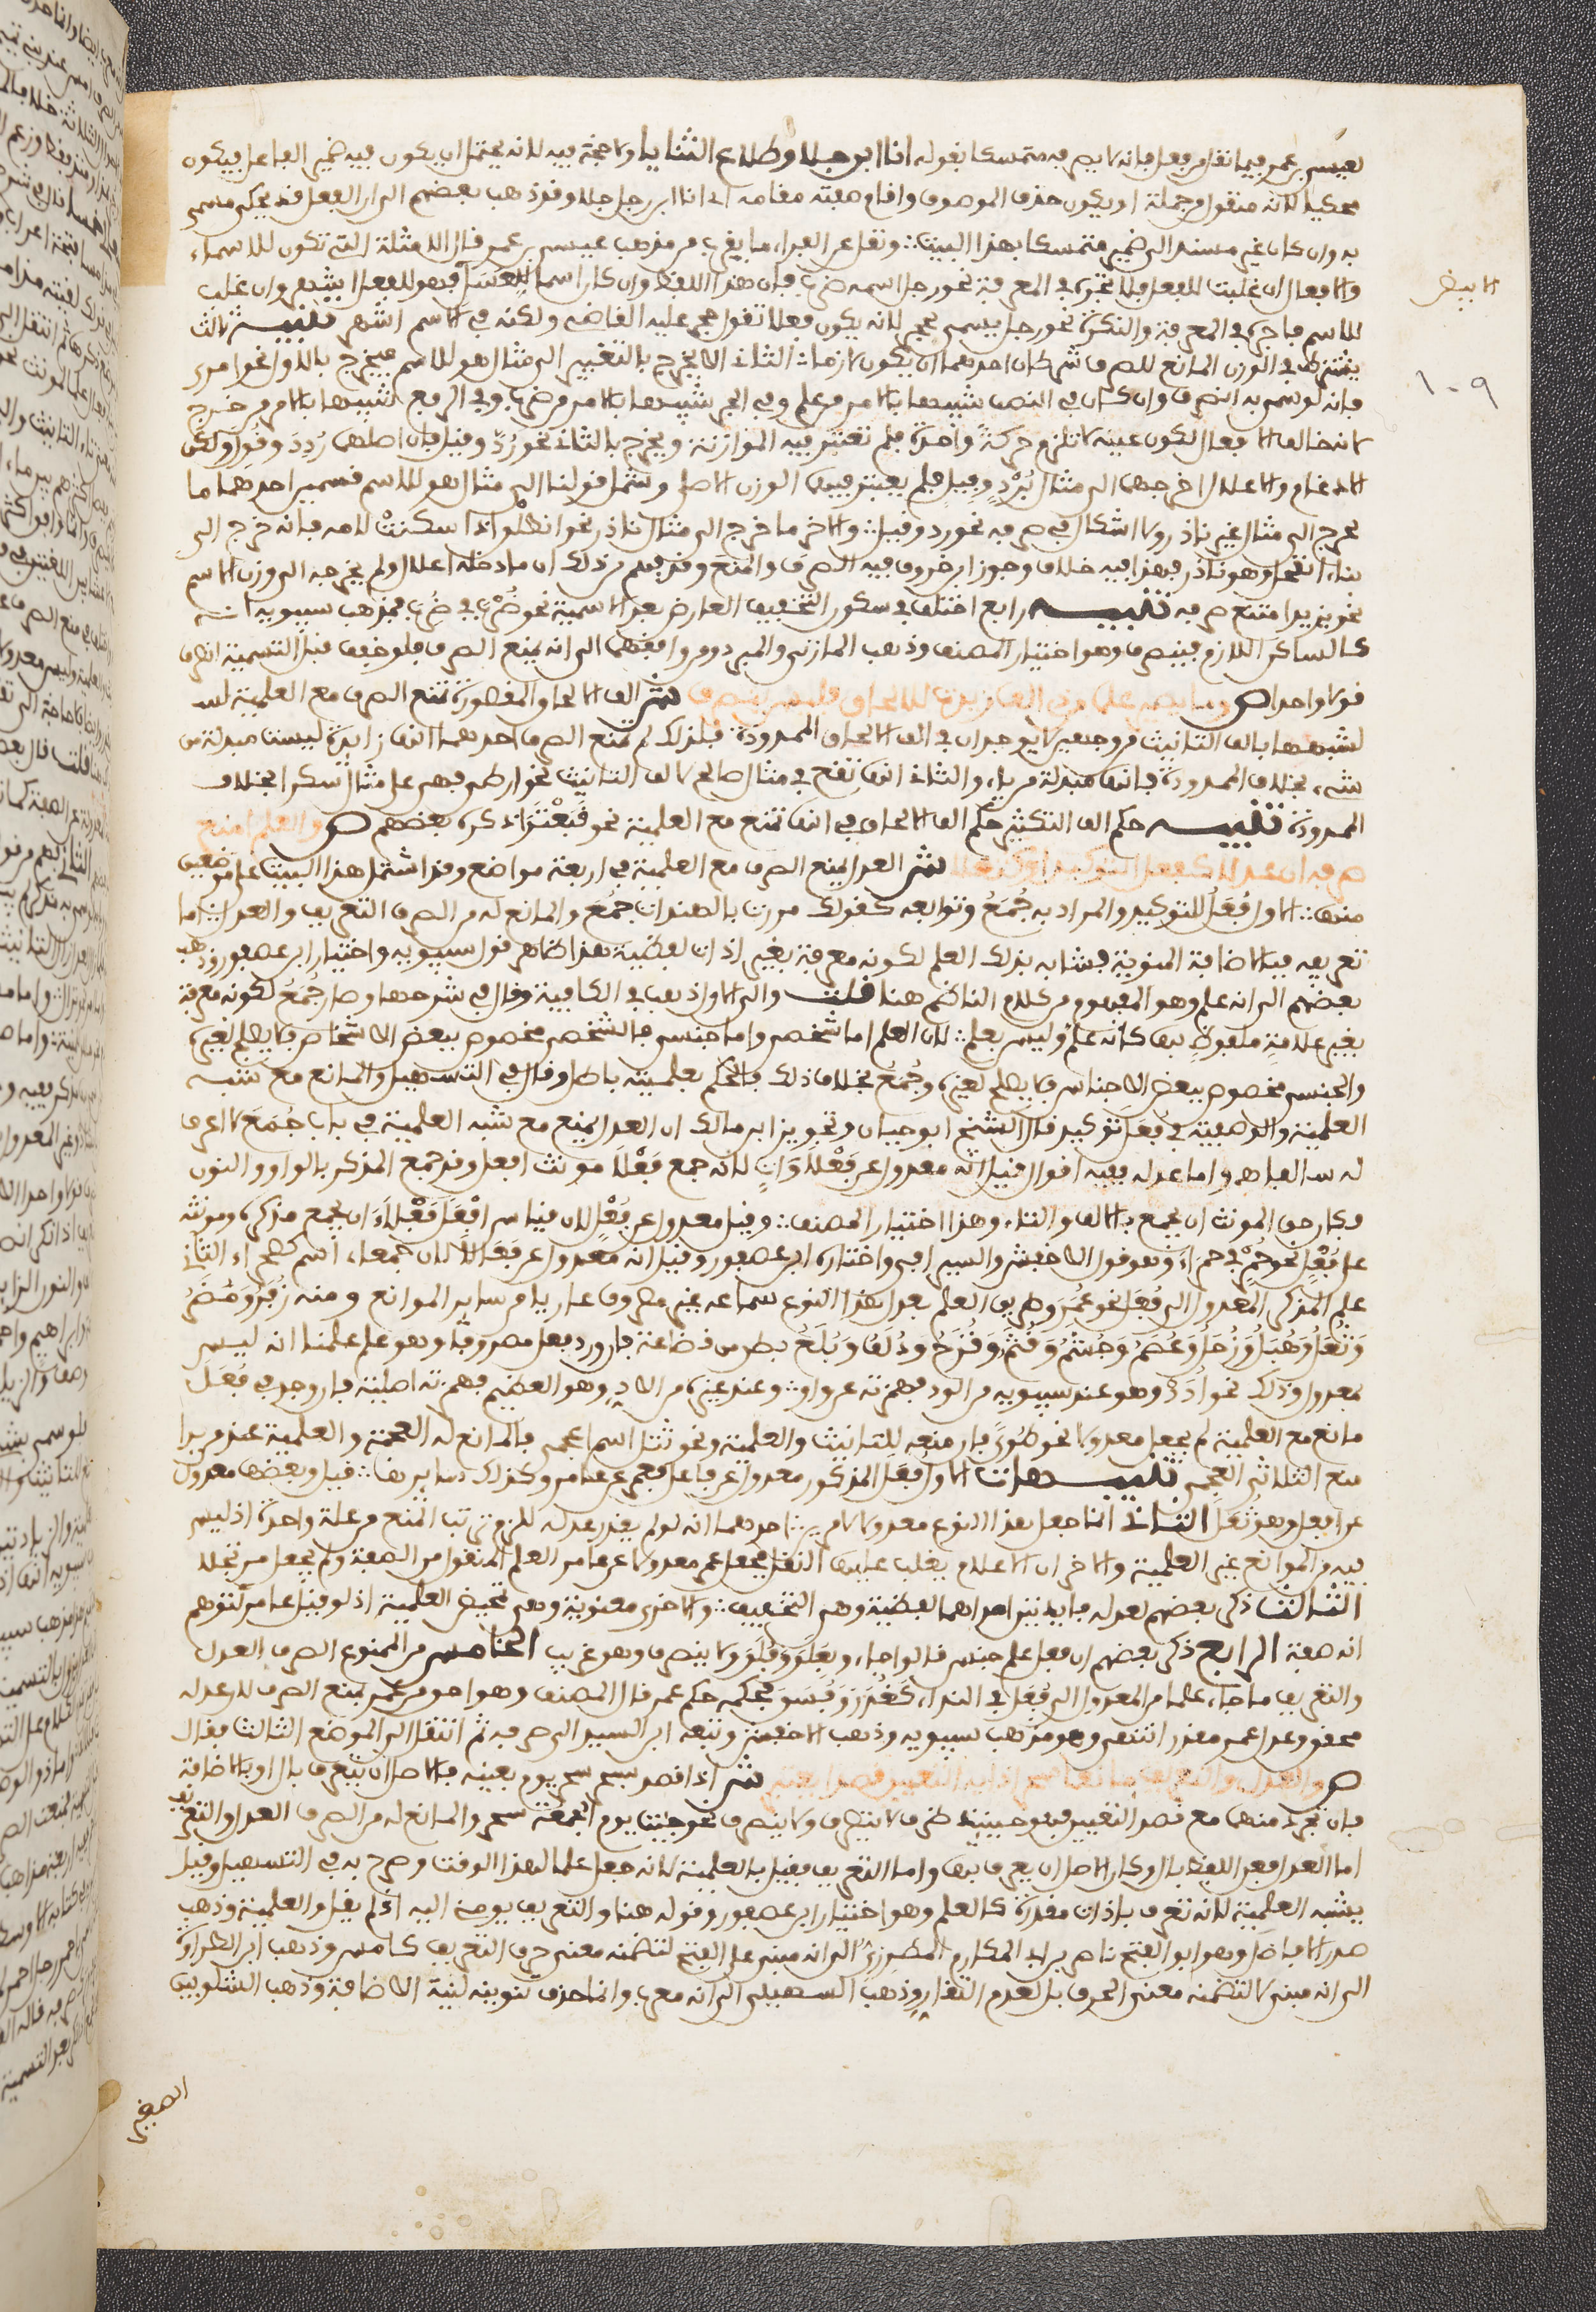 لعيسى بن عمر فيما نقل من فعل فإنه لا يصرفه متمسكا بقوله أنا ابن جلا وطلاع الثنايا ولا حجة فيه لأنه يحتمل أن يكون فيه ضمير الفاعل فيكون
محكيا لأنه منقول من جملة أو يكون حذف الموصوف وأقام صفته مقامه أي أنا ابن رجل جلا وقد ذهب بعضهم إلى أن الفعل قد يحكى مسمى
به وإن كان غير مسند إلى ضمير متمسكا بهذا البيت ونقل عن الفراء ما يقرب من مذهب عيسى بن عمر قال الأمثلة التي تكون للأسماء
والأفعال إن غلبت للفعل فلا تجره في المعرفة نحو رجل اسمه ضرب فإن هذا اللفظ وإن كان اسما للعسل فهو للفعل أشهر وإن غلب
الأبيض
للاسم فأجره في المعرفة والنكرة نحو رجل يسمى بحجر لأنه يكون فعلا تقول حجر عليه القاضي ولكنه في الاسم أشهر تنبيه ثالث
يشترط في الوزن المانع للصرف شرطان أحدهما أن يكون لازما الثاني ألا يخرج بالتغيير إلى مثال هو للاسم فيخرج بالأول نحو امرئ
١٠٩
فإنه لو سمي به انصرف وإن كان في النصب شبيها بالأمر من علم وفي الجر شبيها بالأمر من ضرب وفي الرفع شبيها بالأمر من خرج
لأنه خالف الأفعال لكون عينه لا تلزم حركة واحدة فلم تعتبر فيه الموازنة ويخرج بالثاني نحو رد وقيل فإن أصلهما ردد وقول ولكن
الإدغام والإعلال أخرجهما إلى مثال برد وفيل فلم يعتبر فيهما الوزن الأصلي وشمل قولنا إلى مثال هو للاسم قسمين أحدهما ما
خرج إلى مثال غير نادر ولا إشكال في صرفه نحو رد وقيل والآخر ما خرج إلى مثال نادر نحو انطلق إذا سكنت لامه فإنه خرج إلى
بناء انقحل وهو نادر فهذا فيه خلاف وجوز ابن خروف فيه الصرف والمنع وقد فهم من ذلك أن ما دخله إعلال ولم يخرجه إلى وزن الاسم
نحو يزيد امتنع صرفه تنبيه رابع اختلف في سكون التخفيف العارض بعد التسمية نحو ضرب في ضرب فمذهب سيبويه أنه
كالساكن اللازم فينصرف وهو اختيار المصنف وذهب المازني والمبرد ومن وافقهما إلى أنه يمنع الصرف فلو خفف قبل التسمية انصرف
قولا واحدا ص وما يصير علما من ذي ألف زيدت لإلحاق فليس ينصرف ش ألف الإلحاق المقصورة تمنع الصرف مع العلمية
لشبهها بألف التأنيث من وجهين لا يوجدان في ألف الإلحاق الممدودة فلذلك لم تمنع الصرف أحدهما أنها زائدة ليست مبدلة من
شيء بخلاف الممدودة فإنها مبدلة من ياء والثاني أنها تقع في مثال صالح لألف التأنيث نحو أرطى فهي على مثال سكرى بخلاف
الممدودة تنبيه حكم ألف التكثير حكم ألف الإلحاق في أنها تمنع مع العلمية نحو قبعثرى ذكره بعضهم ص والعلم امنع
صرفه إن عدلا كفعل التوكيد أو كثعلا ش العدل يمنع الصرف مع العلمية في أربعة مواضع وقد اشتمل هذا البيت على موضعين
منها الأول فعل للتوكيد والمراد به جمع وتوابعه كقولك مررت بالهندات جمع والمانع له من الصرف التعريف والعدل أما
تعريفه فبالإضافة المنوية فشابه بذلك العلم لكونه معرفة بغير أداة لفظية هذا ظاهر قول سيبويه واختيار ابن عصفور وذهب
بعضهم إلى أنه علم وهو المفهوم من كلام الناظم هنا قلت وإلى الأول ذهب في الكافية وقال في شرحها وصار جمع لكونه معرفة
بغير علامة ملفوظ بها كأنه علم وليس بعلم لأن العلم إما شخصي وإما جنسي فالشخصي مخصوص ببعض الأشخاص فلا يصلح لغيره
والجنسي مخصوص ببعض الأجناس فلا يصلح لغيره وجمع بخلاف ذلك فالحكم بعلميته باطل وقال في التسهيل والمانع مع شبه
العلمية والوصفية في فعل توكيد قال الشيخ أبو حيان وتجويز ابن مالك أن العدل يمنع مع شبه العلمية في باب جمع لا أعرف
له سلفا وأما عدله ففيه أقوال قيل إنه معدول عن فعلاوات لأنه جمع فعلاء مؤنث أفعل وقد جمع المذكر بالواو والنون
فكان حق المؤنث أن يجمع بالألف والتاء وهذا اختيار المصنف وقيل معدول عن فعل لأن قياس أفعل فعلاء أن يجمع مذكره ومؤنثه
على فعل نحو حمر في حمراء وهو قول الأخفش والسيرافي واختاره ابن عصفور وقيل إنه معدول عن فعالى لأن جمعاء اسم كصحراء الثاني
علم المذكر المعدول إلى فعل نحو عمر وطريق العلم بعدل هذا النوع سماعه غير مصروف عاريا من سائر الموانع ومنه زفر ومضر
وثعل وهبل وزحل وعصم وجشم وقثم وقزح ودلف وبلع بطن من قضاعة فإن ورد فعل مصروفا وهو علم علمنا أنه ليس
بمعدول وذلك نحو أدد وهو عند سيبويه من الود فهمزته عن واو وعند غيره من الإد وهو العظيم فهمزته أصلية فإن وجد في فعل
مانع مع العلمية لم يجعل معدولا نحو طوى فإن منعه للتأنيث والعلمية ونحو تتل اسم أعجمي فالمانع له العجمة والعلمية عند من يرى
منع الثلاثي العجمي تنبيهات الأول فعل المذكور معدول عن فاعل فعمر عن عامر وكذلك سائرها قيل وبعضها معدول
عن أفعل وهو ثعل الثاني إنما جعل هذا النوع معدولا لأمرين أحدهما أنه لو لم يقدر عدله للزم ترتب المنع من علة واحدة إذ ليس
فيه من الموانع غير العلمية والآخر أن الأعلام يغلب عليها النقل فجعل عمر معدولا عن عامر العلم المنقول من الصفة ولم يجعل مرتجلا
الثالث ذكر بعضهم لعدله فائدتين إحداهما لفظية وهي التخفيف والأخرى معنوية وهي تمحيض العلمية إذ لو قيل عامر لتوهم
أنه صفة الرابع ذكر بعضهم أن فعل علم جنس قالوا جاء بعلق وفلق ولا ينصرف وهو غريب الخامس من الممنوع الصرف للعدل
والتعريف ما جاء علما من المعدول إلى فعل في النداء كغدر وفسق فحكمه حكم عمر قال المصنف وهو أحق من عمر بمنع الصرف لأن عدله
محقق وعدل عمر مقدر انتهى وهو مذهب سيبويه وذهب الأخفش وتبعه ابن السيد إلى صرفه ثم انتقل إلى الموضع الثالث فقال
ص والعدل والتعريف مانعا سحر إذا به التعيين قصدا يعتبر ش إذا قصد بسحر سحر يوم بعينه فالأصل أن يعرف بأل أو بالإضافة
فإن تجرد منهما مع قصد التعيين فهو حينئذ ظرف لا يتصرف ولا ينصرف نحو جئت يوم الجمعة سحر والمانع له من الصرف العدل والتعريف
أما العدل فعن اللفظ بأل وكان الأصل أن يعرف بها وأما التعريف فقيل بالعلمية لأنه جعل علما لهذا الوقت وصرح به في التسهيل وقيل
بشبه العلمية لأنه تعرف بأداة مقدرة كالعلم وهو اختيار ابن عصفور وقوله هنا والتعريف يومئ إليه إذ لم يقل والعلمية وذهب
صدر الأفاضل وهو أبو الفتح ناصر بن أبي المكارم المطرزي إلى أنه مبني على الفتح لتضمنه معنى حرف التعريف كأمس وذهب ابن الطراوة
إلى أنه مبني لا لتضمنه معنى الحرف بل لعدم التقار وذهب السهيلي إلى أنه معرب وإنما حذف تنوينه لنية الإضافة وذهب الشلوبين
الصغير